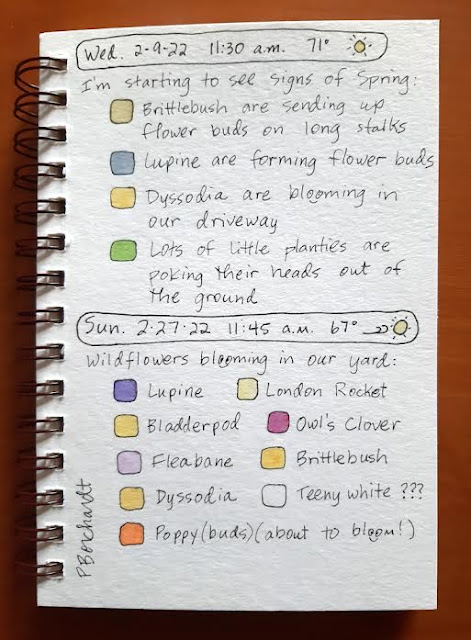 Wed. 2-9-22 11:30 a.m. 71°
I'm starting to see signs of Spring:
Brittlebush are sending up
flower buds on long stalks
Lupine are forming flower buds
Dyssodia are blooming in
our driveway
Lots of little planties are
poking their heads out of
the ground
Sun. 2-27-22 11:45 a.m. 67°
Wildflowers blooming in our yard:
Lupine London Rocket
Bladderpod Owl's Clover
Fleabane Brittlebush
Dyssodia Teeny white ???
Poppy (buds) (about to bloom!)
PBorchardt